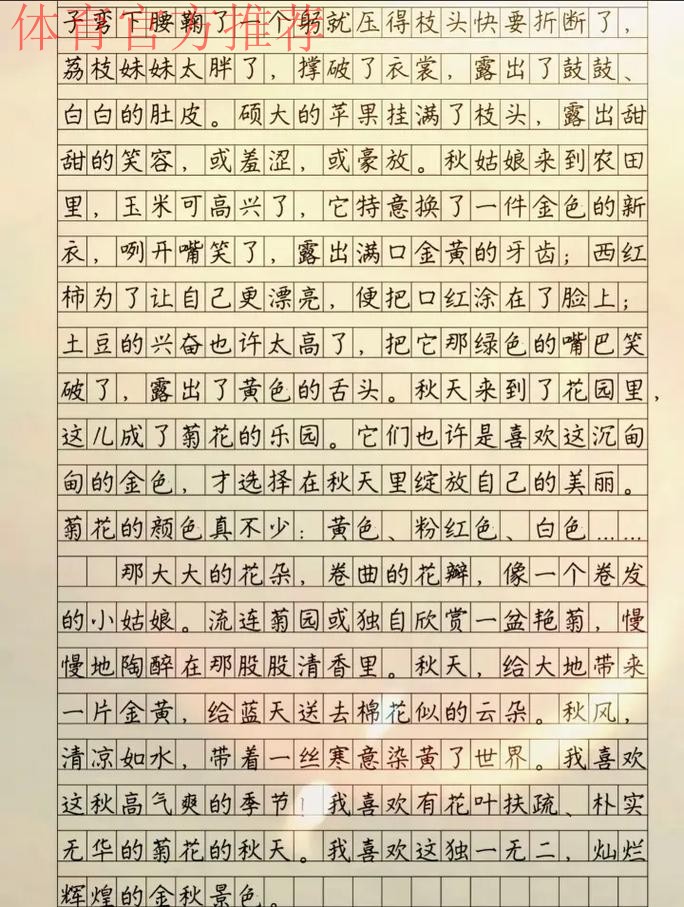 体育官方推荐
子弯下腰鞠了一个躬就压得枝头快要折断了，
荔枝妹妹太胖了，撑破了衣裳，露出了鼓鼓、
白白的肚皮。硕大的苹果挂满了枝头，露出甜
甜的笑容，或羞涩，或豪放。秋姑娘来到农田
里，玉米可高兴了，它特意换了一件金色的新
衣，咧开嘴笑了，露出满口金黄的牙齿；西红
柿为了让自己更漂亮，便把口红涂在了脸上；
土豆的兴奋也许太高了，把它那绿色的嘴巴笑
破了，露出了黄色的舌头。秋天来到了花园里，
这儿成了菊花的乐园。它们也许是喜欢这沉甸
甸的金色，才选择在秋天里绽放自己的美丽。
菊花的颜色真不少：黄色、粉红色、白色……
那大大的花朵，卷曲的花瓣，像一个卷发
的小姑娘。流连菊园或独自欣赏一盆艳菊，慢
慢地陶醉在那股股清香里。秋天，给大地带来
一片金黄，给蓝天送去棉花似的云朵。秋风，
清凉如水，带着一丝寒意染黄了世界。我喜欢
这秋高气爽的季节！我喜欢有花叶扶疏、朴实
无华的菊花的秋天。我喜欢这独一无二，灿烂
辉煌的金秋景色。